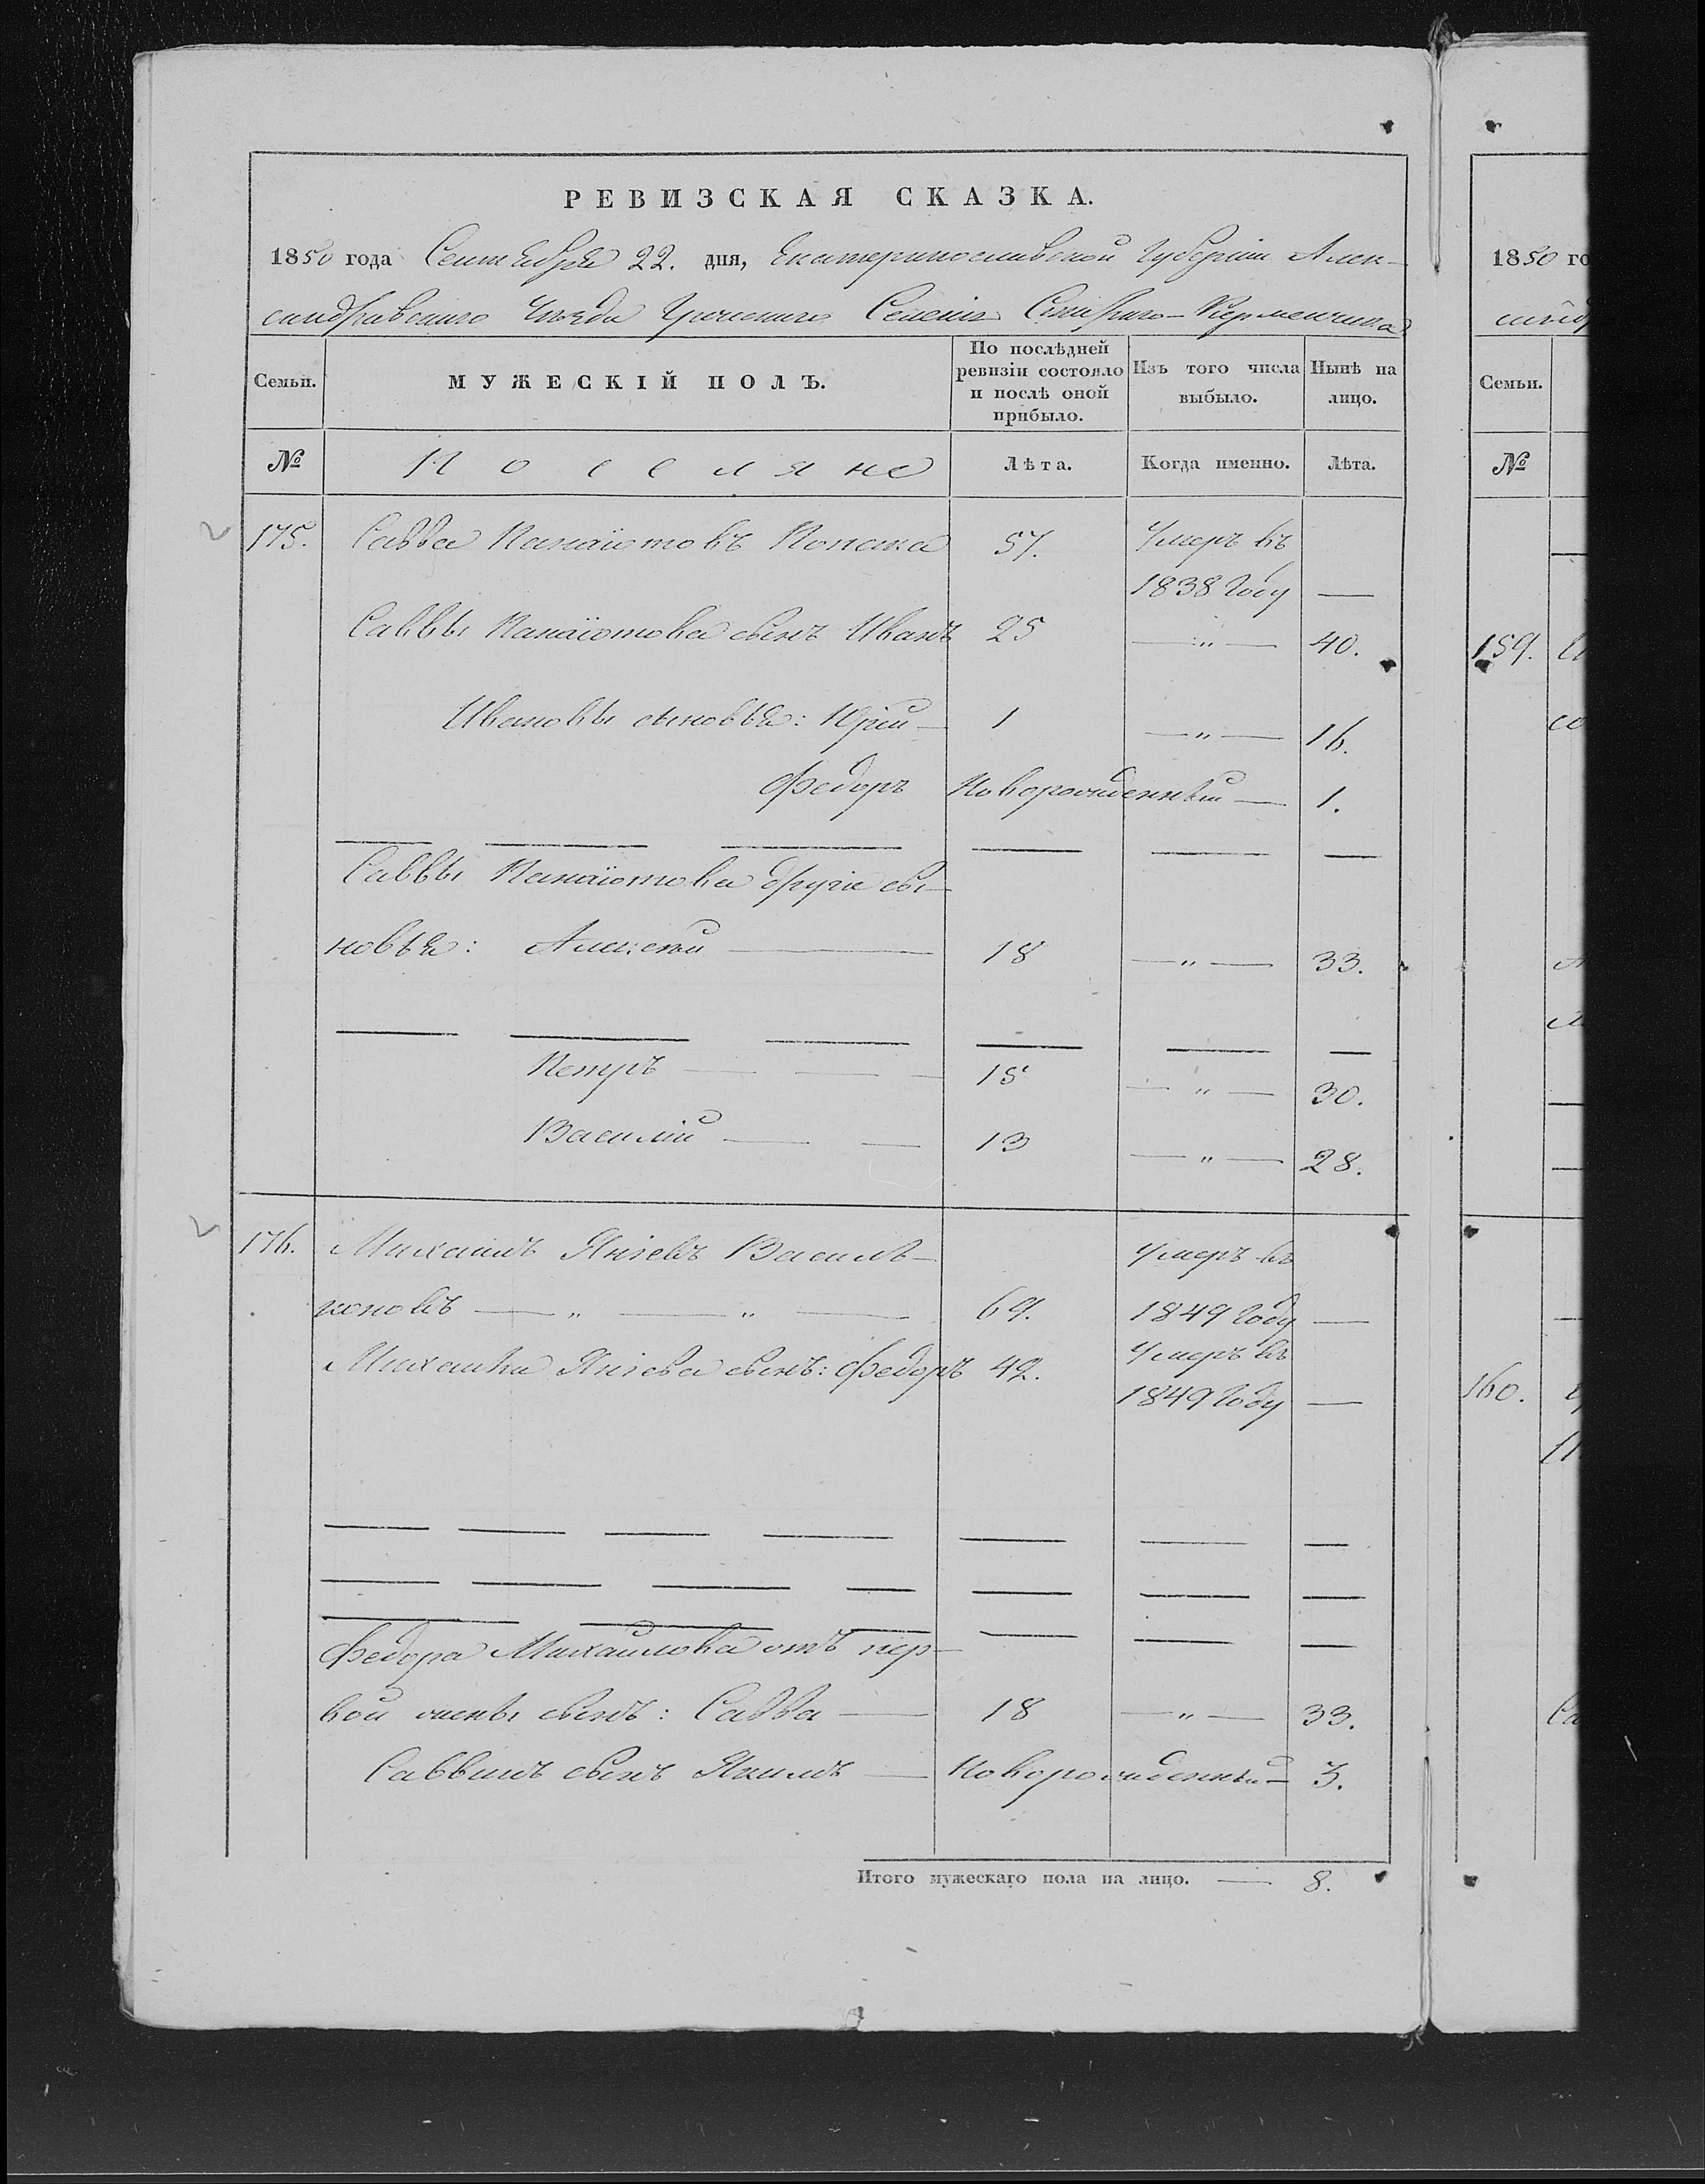 РЕВИЗСКАЯ СКАЗКА.
1850 года Сентября 22. дня, Екатеринославской Губернiи Алек-
сандравскаго Уѣзда Греческаго Селенiя Стараго-Керменчика
Семьи.
МУЖЕСКІЙ ПОЛЪ.
По послѣдней ревизіи состояло и послѣ оной прибыло.
Изъ того числа выбыло.
Нынѣ на лицо.
№
Поселяне
Лѣта.
Когда именно.
Лѣта.
175. Савва Панаіотовъ 57. Умеръ въ
1838 Году —
Саввы Панаіотова сынъ Иванъ 25 — " — 40.
Ивановы сыновья: Юрій 1 — " — 16.
Федоръ Новорожденный — 1.
Саввы Панаіотова другіе сы-
новья: Алексѣй 18 — " — 33.
Петръ 15 — " — 30.
Василій 13 — " — 28.
176. Михаилъ Янiевъ Василь- Умеръ въ
коновъ — " — " — 69. 1849 Году —
Михаила Янiева сынъ: Федоръ 42. Умеръ въ
1849 Году —
Федора Михайлова отъ пер-
вой жены сынъ: Савва 18 — " — 33.
Саввинъ сынъ Якимъ — Новорожденный — 3.
Итого мужескаго пола на лицо. — 8.
1850 го
Семьи.
№
159.
160.